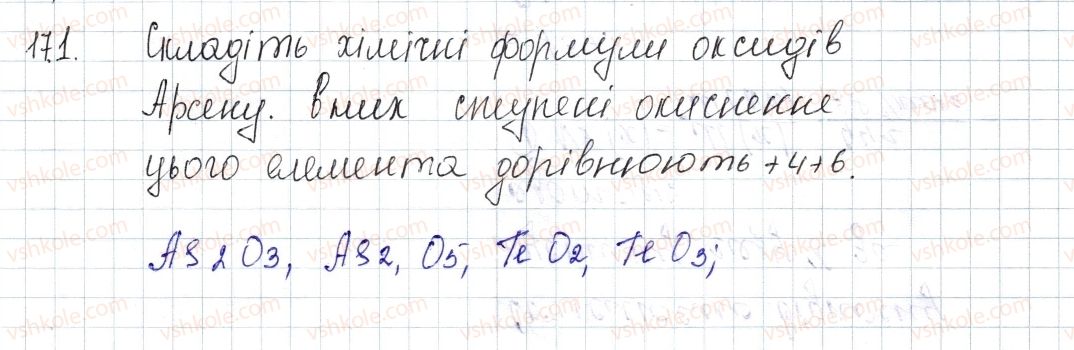 171. Складіть хімічні формули оксидів
Арсену. в яких ступені окиснення
цього елемента дорівнюють +4+6.
As2O3, As2, O5, TeO2, TeO3;